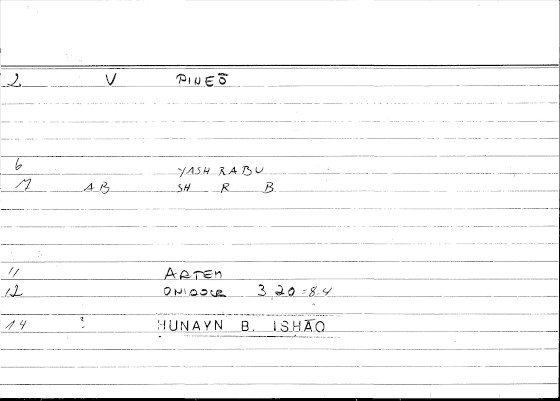 2 V PINEŌ
6 YASHRABU
M AB SH R B
11 ARTEM
12 3.20=8.4
14 ? HUNAYN B. ISHĀQ